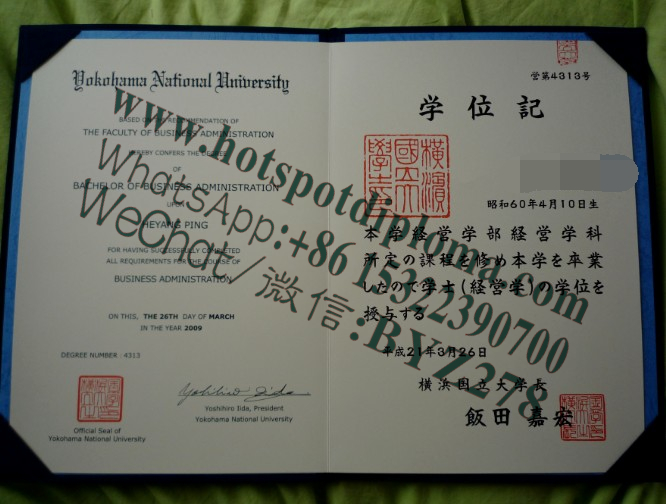 Yokohama National University
BASED ON THE RECOMMENDATION OF
THE FACULTY OF BUSINESS ADMINISTRATION
HEREBY CONFERS THE DEGREE
OF
BACHELOR OF BUSINESS ADMINISTRATION
UPON
HEYANG PING
FOR HAVING SUCCESSFULLY COMPLETED
ALL REQUIREMENTS FOR THE COURSE OF
BUSINESS ADMINISTRATION
ON THIS, THE 26TH DAY OF MARCH
IN THE YEAR 2009
DEGREE NUMBER : 4313
Official Seal of
Yokohama National University
Yoshihiro Iida
Yoshihiro Iida, President
Yokohama National University
営第4313号
学位記
昭和60年4月10日生
本学経営学部経営学科
所定の課程を修め本学を卒業
したので学士(経営学)の学位を
授与する
平成21年3月26日
横浜国立大学長
飯田 嘉宏
www.hotspotdiploma.com
WhatsApp:+86 15322390700
WeChat/微信:BYZ278